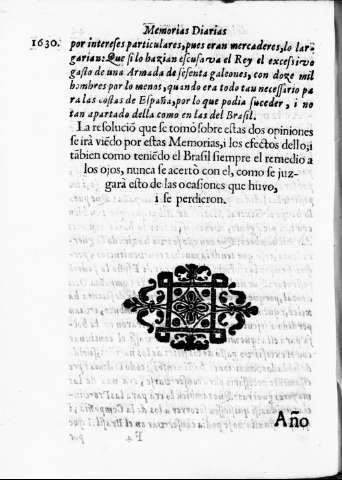 Memorias Diarias
1630. por intereses particulares, pues eran mercaderes, lo lar-
garian: Que si lo hazian escusava el Rey el excessivo
gasto de una Armada de sesenta galeones, con doze mil
hombres por lo menos, quando era todo tau necessario pa
ra las costas de España, por lo que podia suceder, i no
tan apartado della como en las del Brasil.
La resolució que se tomò sobre estas dos opiniones
se irà viẽdo por estas Memorias, i los efectos dello; i
tãbien como teniẽdo el Brasil siempre el remedio a
los ojos, nunca se acertò con el, como se juz-
garà esto de las ocasiones que huvo,
i se perdieron.
Año